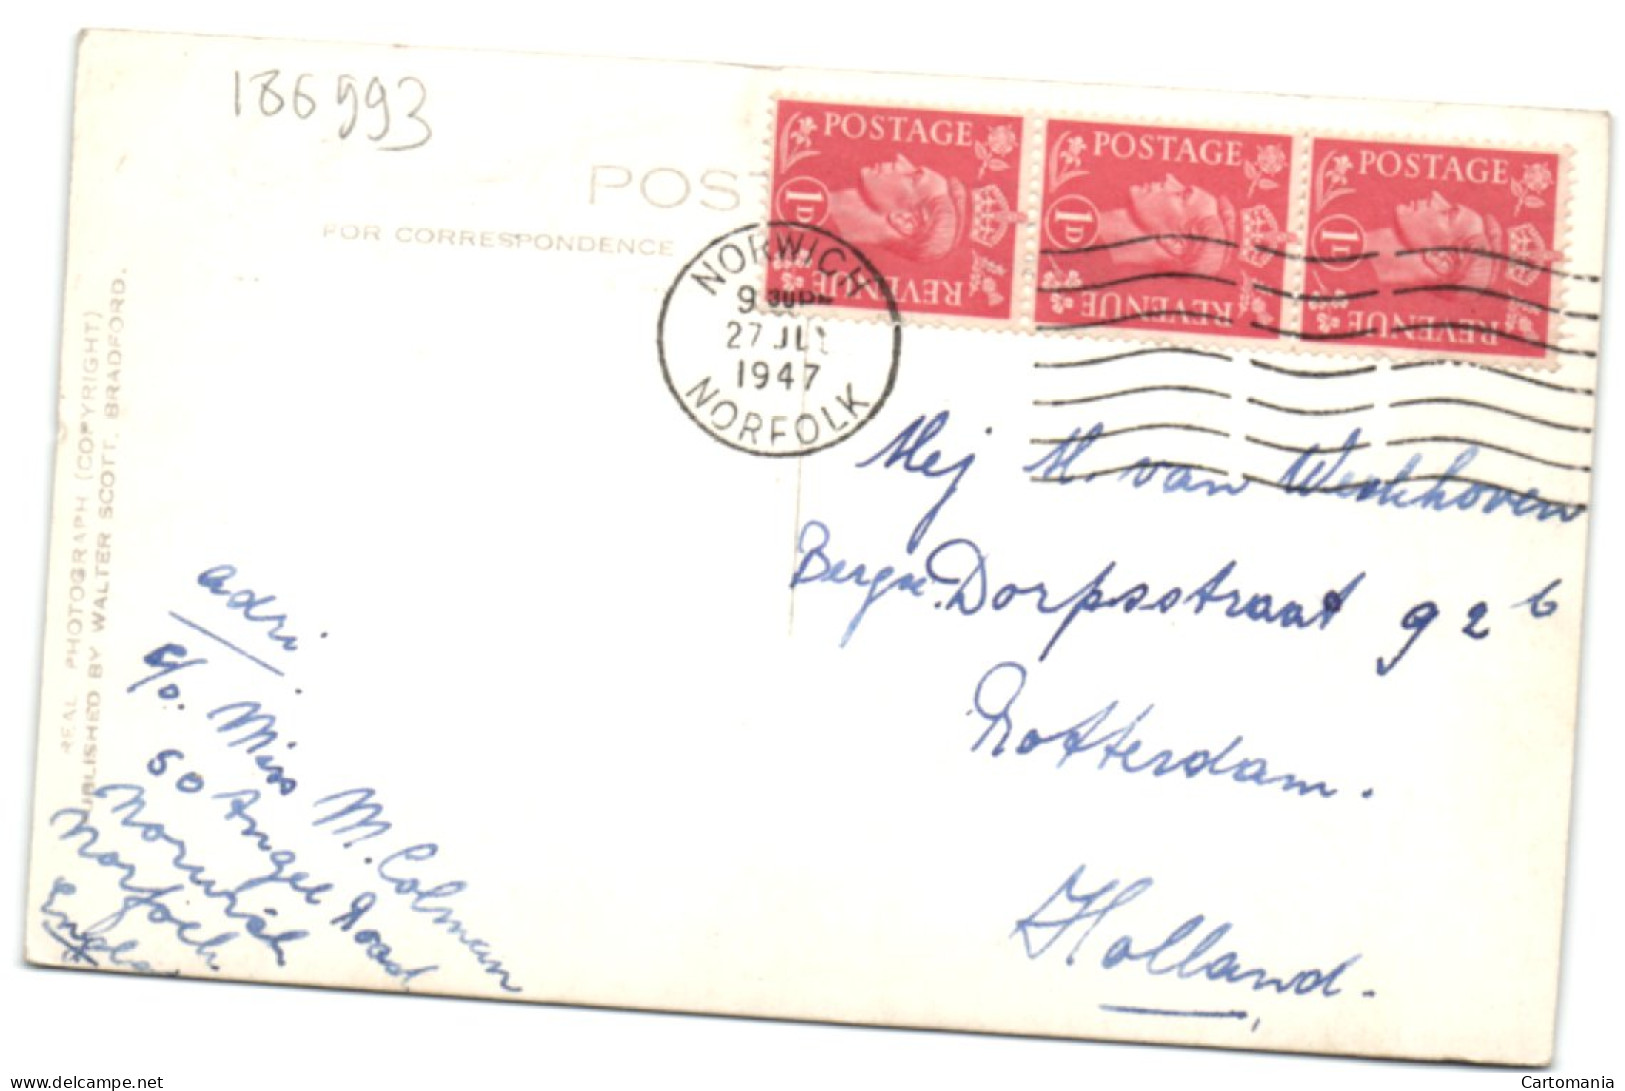 186993
POST
FOR CORRESPONDENCE
POSTAGE
1D
REVENUE
POSTAGE
1D
REVENUE
POSTAGE
1D
REVENUE
NORWICH
9 30 PM
27 JUL
1947
NORFOLK
REAL PHOTOGRAPH (COPYRIGHT)
UBLISHED BY WALTER SCOTT, BRADFORD.
Mej H. van Westhoven
Bergse. Dorpsstraat 92 b
Rotterdam.
Holland.
adri.
c/o. Miss M. Colman
50 Angel Road
Norwich
Norfolk
Engla
www.delcampe.net
Cartomania